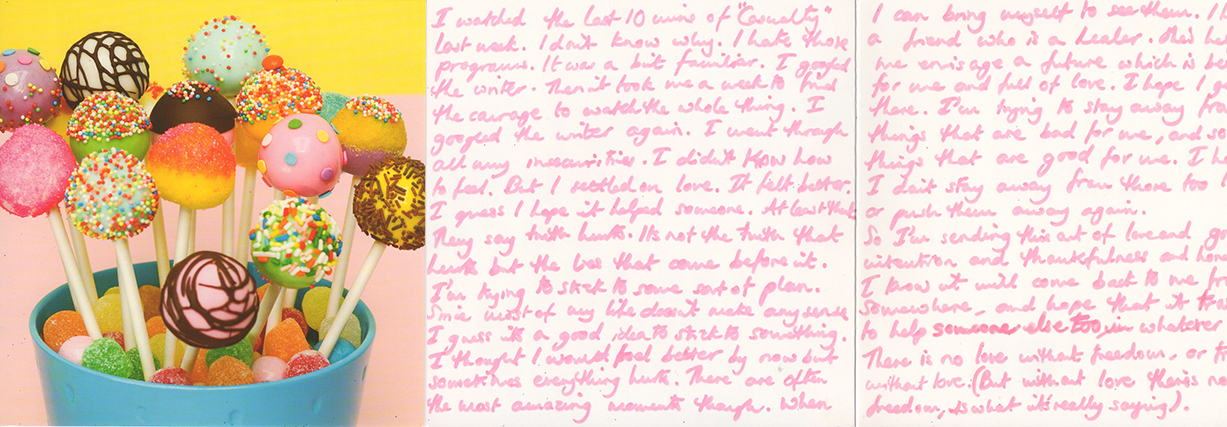 I watched the last 10 mins of "Casualty"
last week. I don't know why. I hate those
programs. It was a bit familiar. I googled
the writer. Then it took me a week to find
the courage to watch the whole thing. I
googled the writer again. I went through
all my insecurities. I didn't know how
to feel. But I settled on love. It felt better.
I guess I hope it helped someone. At least that
They say truth hurts. It's not the truth that
hurts but the lies that come before it.
I'm trying to stick to some sort of plan.
Since most of my life doesn't make any sense
I guess it's a good idea to stick to something.
I thought I would feel better by now but
sometimes everything hurts. There are often
the most amazing moments though. When
I can bring myself to see them. I
a friend who is a healer. She's
me envisage a future which is
for me and full of love. I hope I g
there. I'm trying to stay away fro
things that are bad for me, and se
things that are good for me. I h
I don't stay away from those too
or push them away again.
So I'm sending this out of love and g
intention and thankfulness and
I know it will come back to me fr
somewhere, and hope that it tr
to help someone else too in whatever
There is no love without freedom, or f
without love. (But without love there's n
freedom, is what it's really saying).